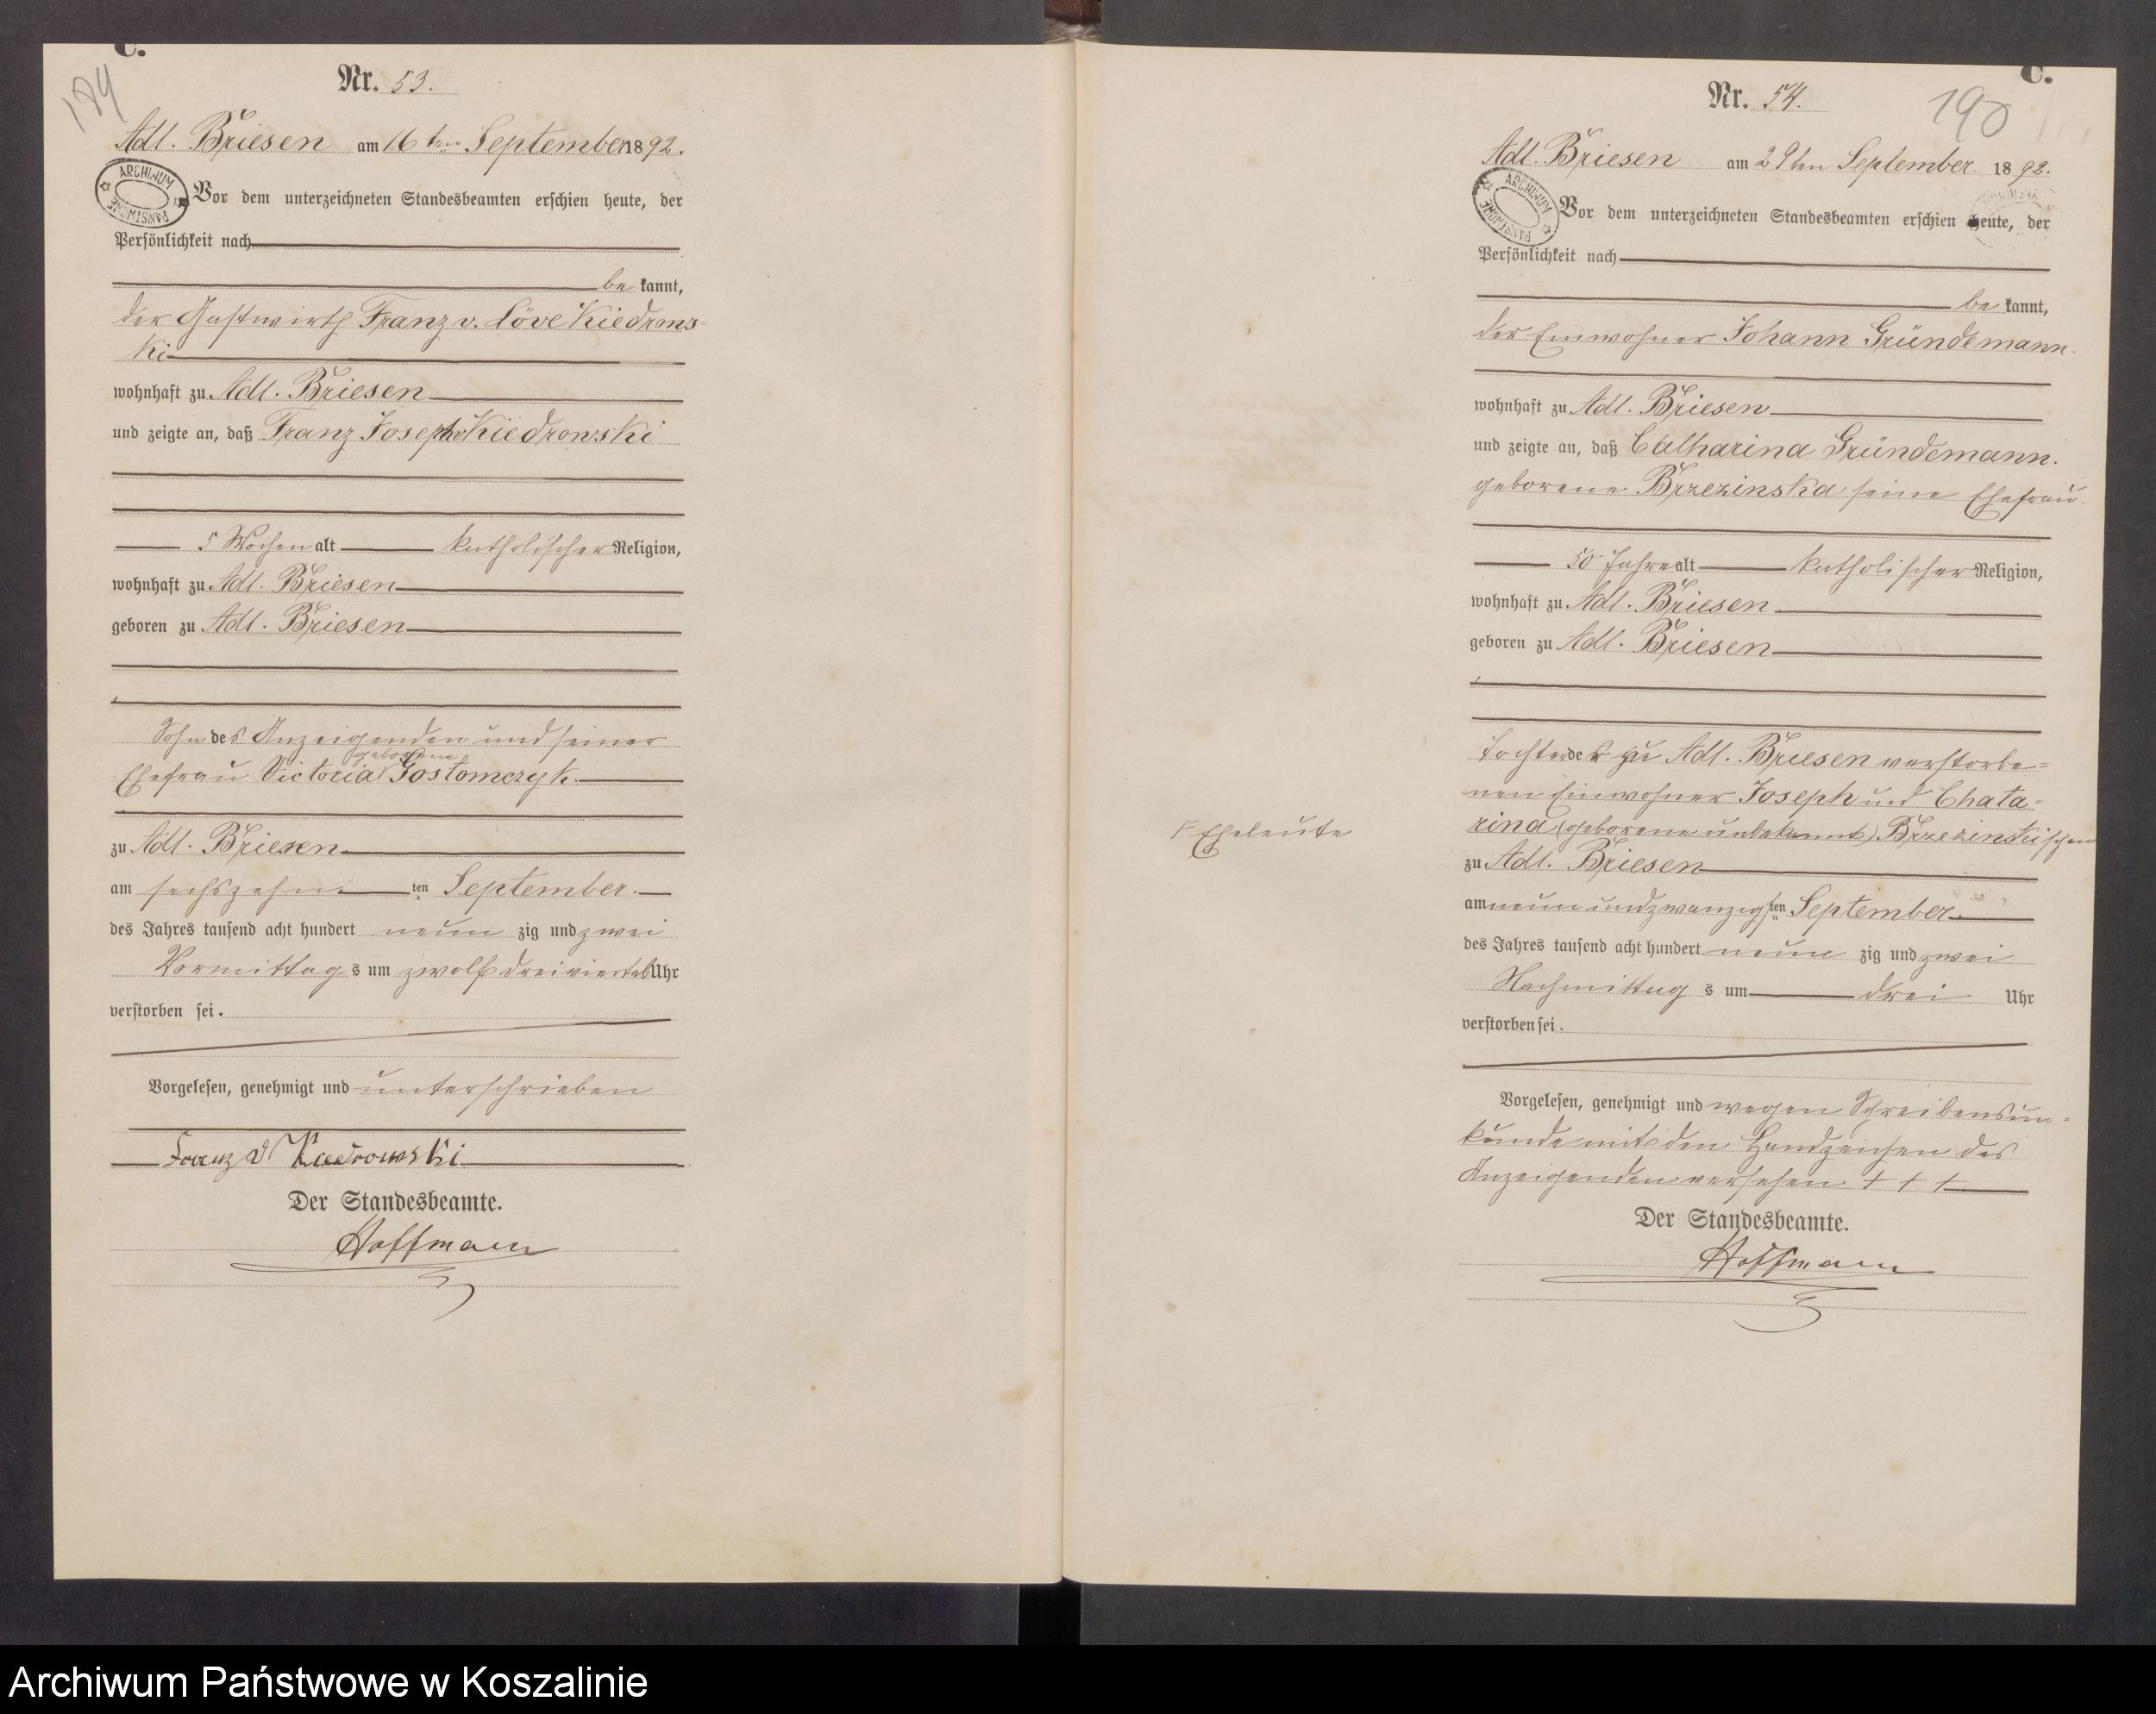 C.
Nr. 53.
189
Adl. Briesen am 16ten September 1892.
ARCHIWUM PAŃSTWOWE
Vor dem unterzeichneten Standesbeamten erschien heute, der
Persönlichkeit nach
be kannt,
der Gastwirth Franz v. Löve Kiedrows-
ki
wohnhaft zu Adl. Briesen
und zeigte an, daß Franz Joseph v Kiedrowski
5 Wochen alt katholischer Religion,
wohnhaft zu Adl. Briesen
geboren zu Adl. Briesen
Sohn des Anzeigenden und seiner
geborene
Ehefrau Victoria Gostomczyk.
zu Adl. Briesen
am sechszehn ten September.
des Jahres tausend acht hundert neun zig und zwei
Vormittag s um zwölf dreiviertel Uhr
verstorben sei.
Vorgelesen, genehmigt und unterschrieben
Franz v Kiedrowski
Der Standesbeamte.
Hoffmann
C.
Nr. 54.
190
Adl. Briesen am 29ten September. 1892.
ARCHIWUM PAŃSTWOWE
Vor dem unterzeichneten Standesbeamten erschien heute, der
Persönlichkeit nach
be kannt,
der Einwohner Johann Gründemann.
wohnhaft zu Adl. Briesen
und zeigte an, daß Catharina Gründemann.
geborene Brzezinska seine Ehefrau.
50 Jahre alt katholischer Religion,
wohnhaft zu Adl. Briesen
geboren zu Adl. Briesen
Tochter der zu Adl. Briesen verstorbe=
nen Einwohner Joseph und Chata=
rina (geborene unbekannt) Brzezinskischen
Eheleute
zu Adl. Briesen
am neun und zwanzigsten September.
des Jahres tausend acht hundert neun zig und zwei
Nachmittag s um drei Uhr
verstorben sei.
Vorgelesen, genehmigt und wegen Schreibensun=
kunde mit den Handzeichen des
Anzeigenden versehen + + +
Der Standesbeamte.
Hoffmann
Archiwum Państwowe w Koszalinie